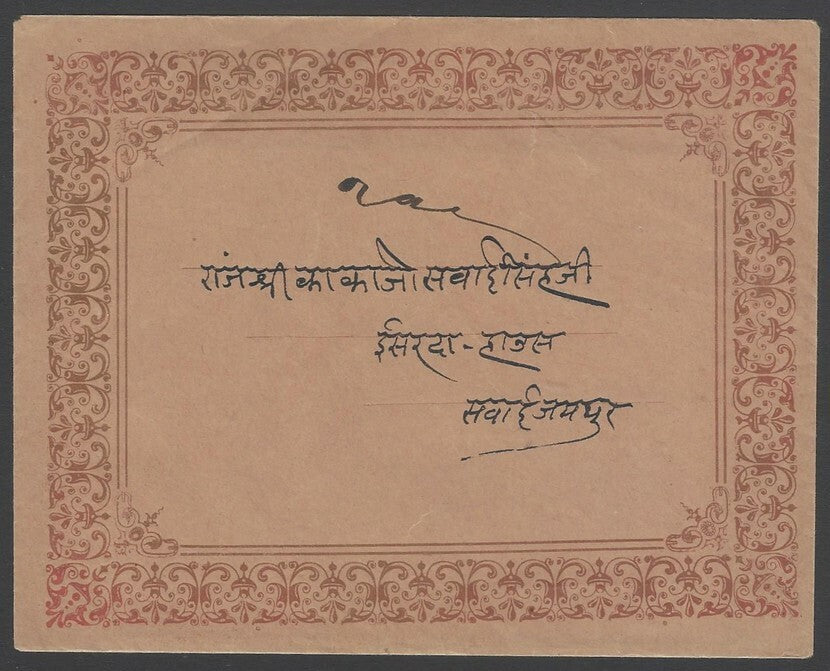 राजश्री काकाजी सवाईसिंहजी
ईसरदा - हाउस
सवाई जयपुर